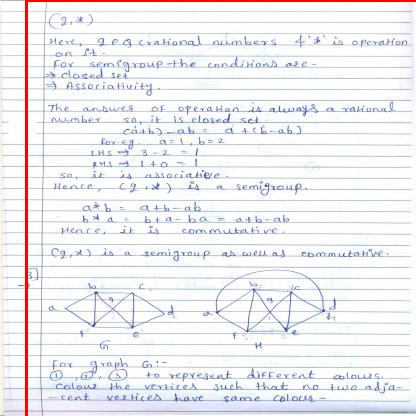 (q, *)
Here, q e Q (rational numbers & '*' is operation
on it.
For semigroup the conditions are -
⇒ closed set
⇒ Associativity.
The answer of operation is always a rational
number. so, it is closed set.
(a+b) - ab = a + (b - ab)
for eg. a = 1, b = 2
LHS → 3 - 2 = 1
RHS → 1 + 0 = 1
so, it is associative.
Hence, (q, *) is a semigroup.
a * b = a + b - ab
b * a = b + a - ba = a + b - ab
Hence, it is commutative.
(q, *) is a semigroup as well as commutative.
3]
b c b c
a g d a g d
f e f e
G H
For graph G :-
① , ② , ③ to represent different colours.
colour the vertices such that no two adja-
-cent vertices have same colour -